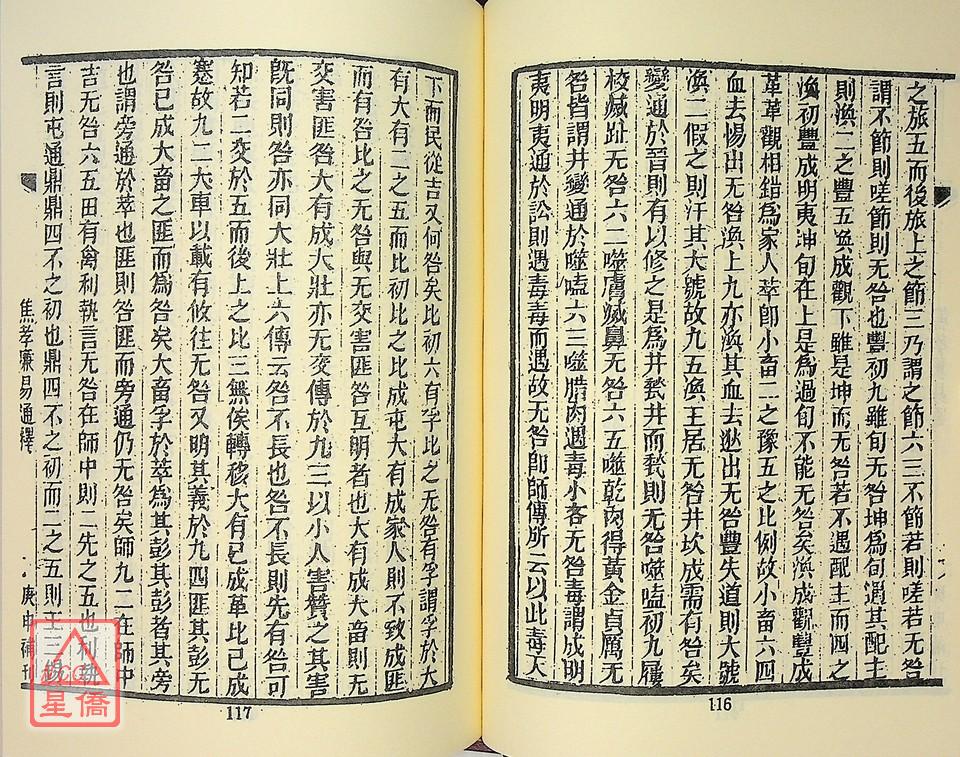 之旅五而後旅上之節三乃謂之節六三不節若則嗟若无咎
謂不節則嗟節則无咎也豐初九雖旬无咎坤爲旬過其配主
則渙二之豐五渙成觀下雖是坤而无咎若不遇配主而四之
渙初豐成明夷坤旬在上是爲過旬不能无咎矣渙成觀豐成
革革觀相錯爲家人萃卽小畜二之豫五之比例故小畜六四
血去惕出无咎渙上九亦渙其血去逖出无咎豐失道則大號
渙二假之則汗其大號故九五渙王居无咎井坎成需有咎矣
變通於晉則有以修之是爲井甃井而甃則无咎噬嗑初九屨
校滅趾无咎六二噬膚滅鼻无咎六五噬乾肉得黃金貞厲无
咎皆謂井變通於噬嗑六三噬腊肉遇毒小吝无咎毒謂成明
夷明夷通於訟則遇毒毒而遇故无咎卽師傳所云以此毒天
116
下而民從吉又何咎矣比初六有孚比之无咎有孚謂孚於大
有大有二之五而比初比之比成屯大有成家人則不致成匪
而有咎比之无咎與无交害匪咎互明者也大有成大畜則无
交害匪咎大有成大壯亦无交傳於九三以小人害贊之其害
旣同則咎亦同大壯上六傳云咎不長也咎不長則先有咎可
知若二交於五而後上之比三無俟轉移大有已成革比已成
蹇故九二大車以載有攸往无咎又明其義於九四匪其彭无
咎已成大畜之匪而爲咎矣大畜孚於萃爲其彭其彭者其旁
也謂旁通於萃也匪則咎匪而旁通仍无咎矣師九二在師中
吉无咎六五田有禽利執言无咎在師中則二先之五也利執
言則屯通鼎鼎四不之初也鼎四不之初而二之五則王三錫
焦孝廉易通釋
庚申補刊
117
星僑